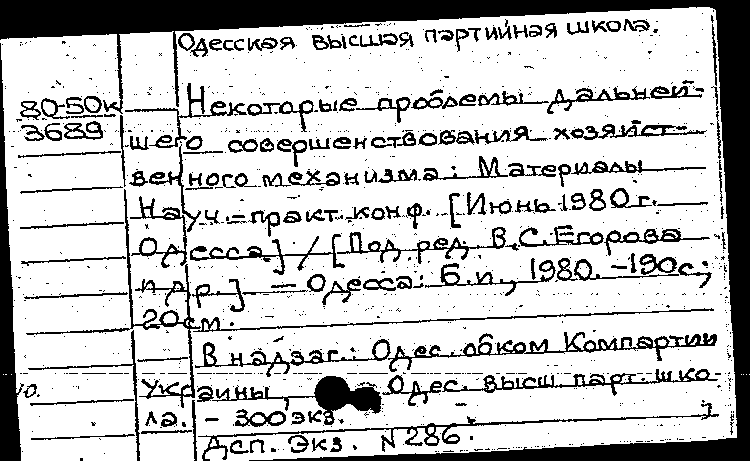 Одесская высшая партийная школа.
80-50к
3689
Некоторые проблемы дальней-
шего совершенствования хозяйст-
венного механизма: Материалы
Науч.-практ. конф. [Июнь 1980 г.
Одесса.] / [Под ред. В.С. Егорова
и др.] — Одесса: Б.и., 1980. -190с.;
20см.
В надзаг.: Одес. обком Компартии
Украины, Одес. высш. парт. шко-
ла. - 300 экз.
Дсп. Экз. N 286.